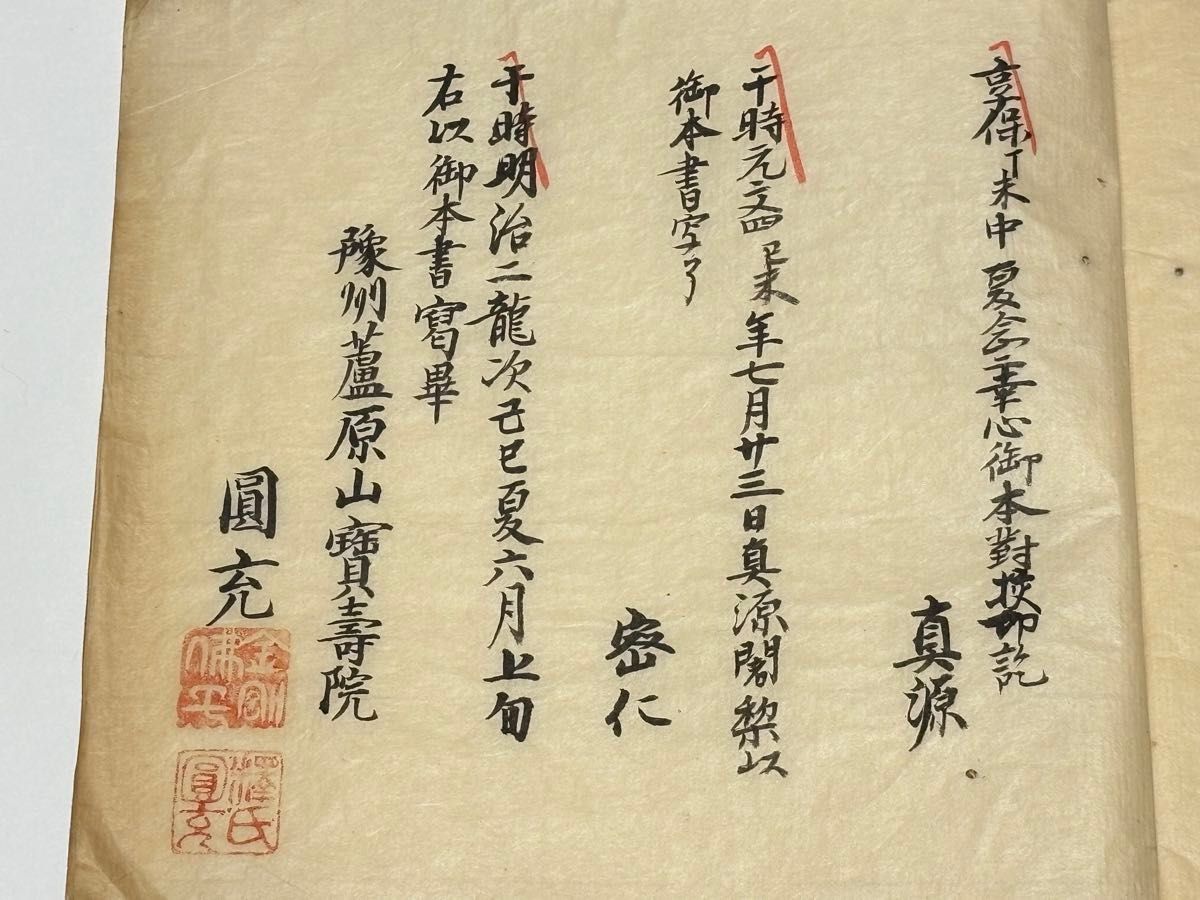 享保丁未中夏念主幸心御本對挍却訖
真源
于時元文四己未年七月廿三日真源闍梨以
御本書写了
密仁
于時明治二龍次己巳夏六月上旬
右以御本書寫畢
豫州蘆原山寶壽院
圓充
金剛佛子
澤氏圓充